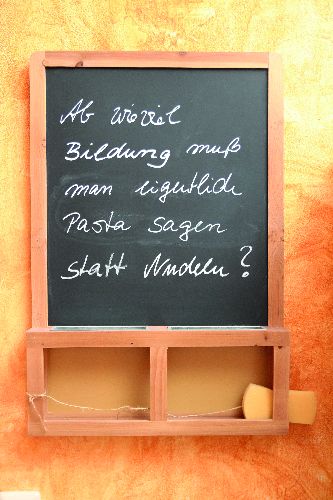 Ab wieviel
Bildung muß
man eigentlich
Pasta sagen
statt Nudeln?